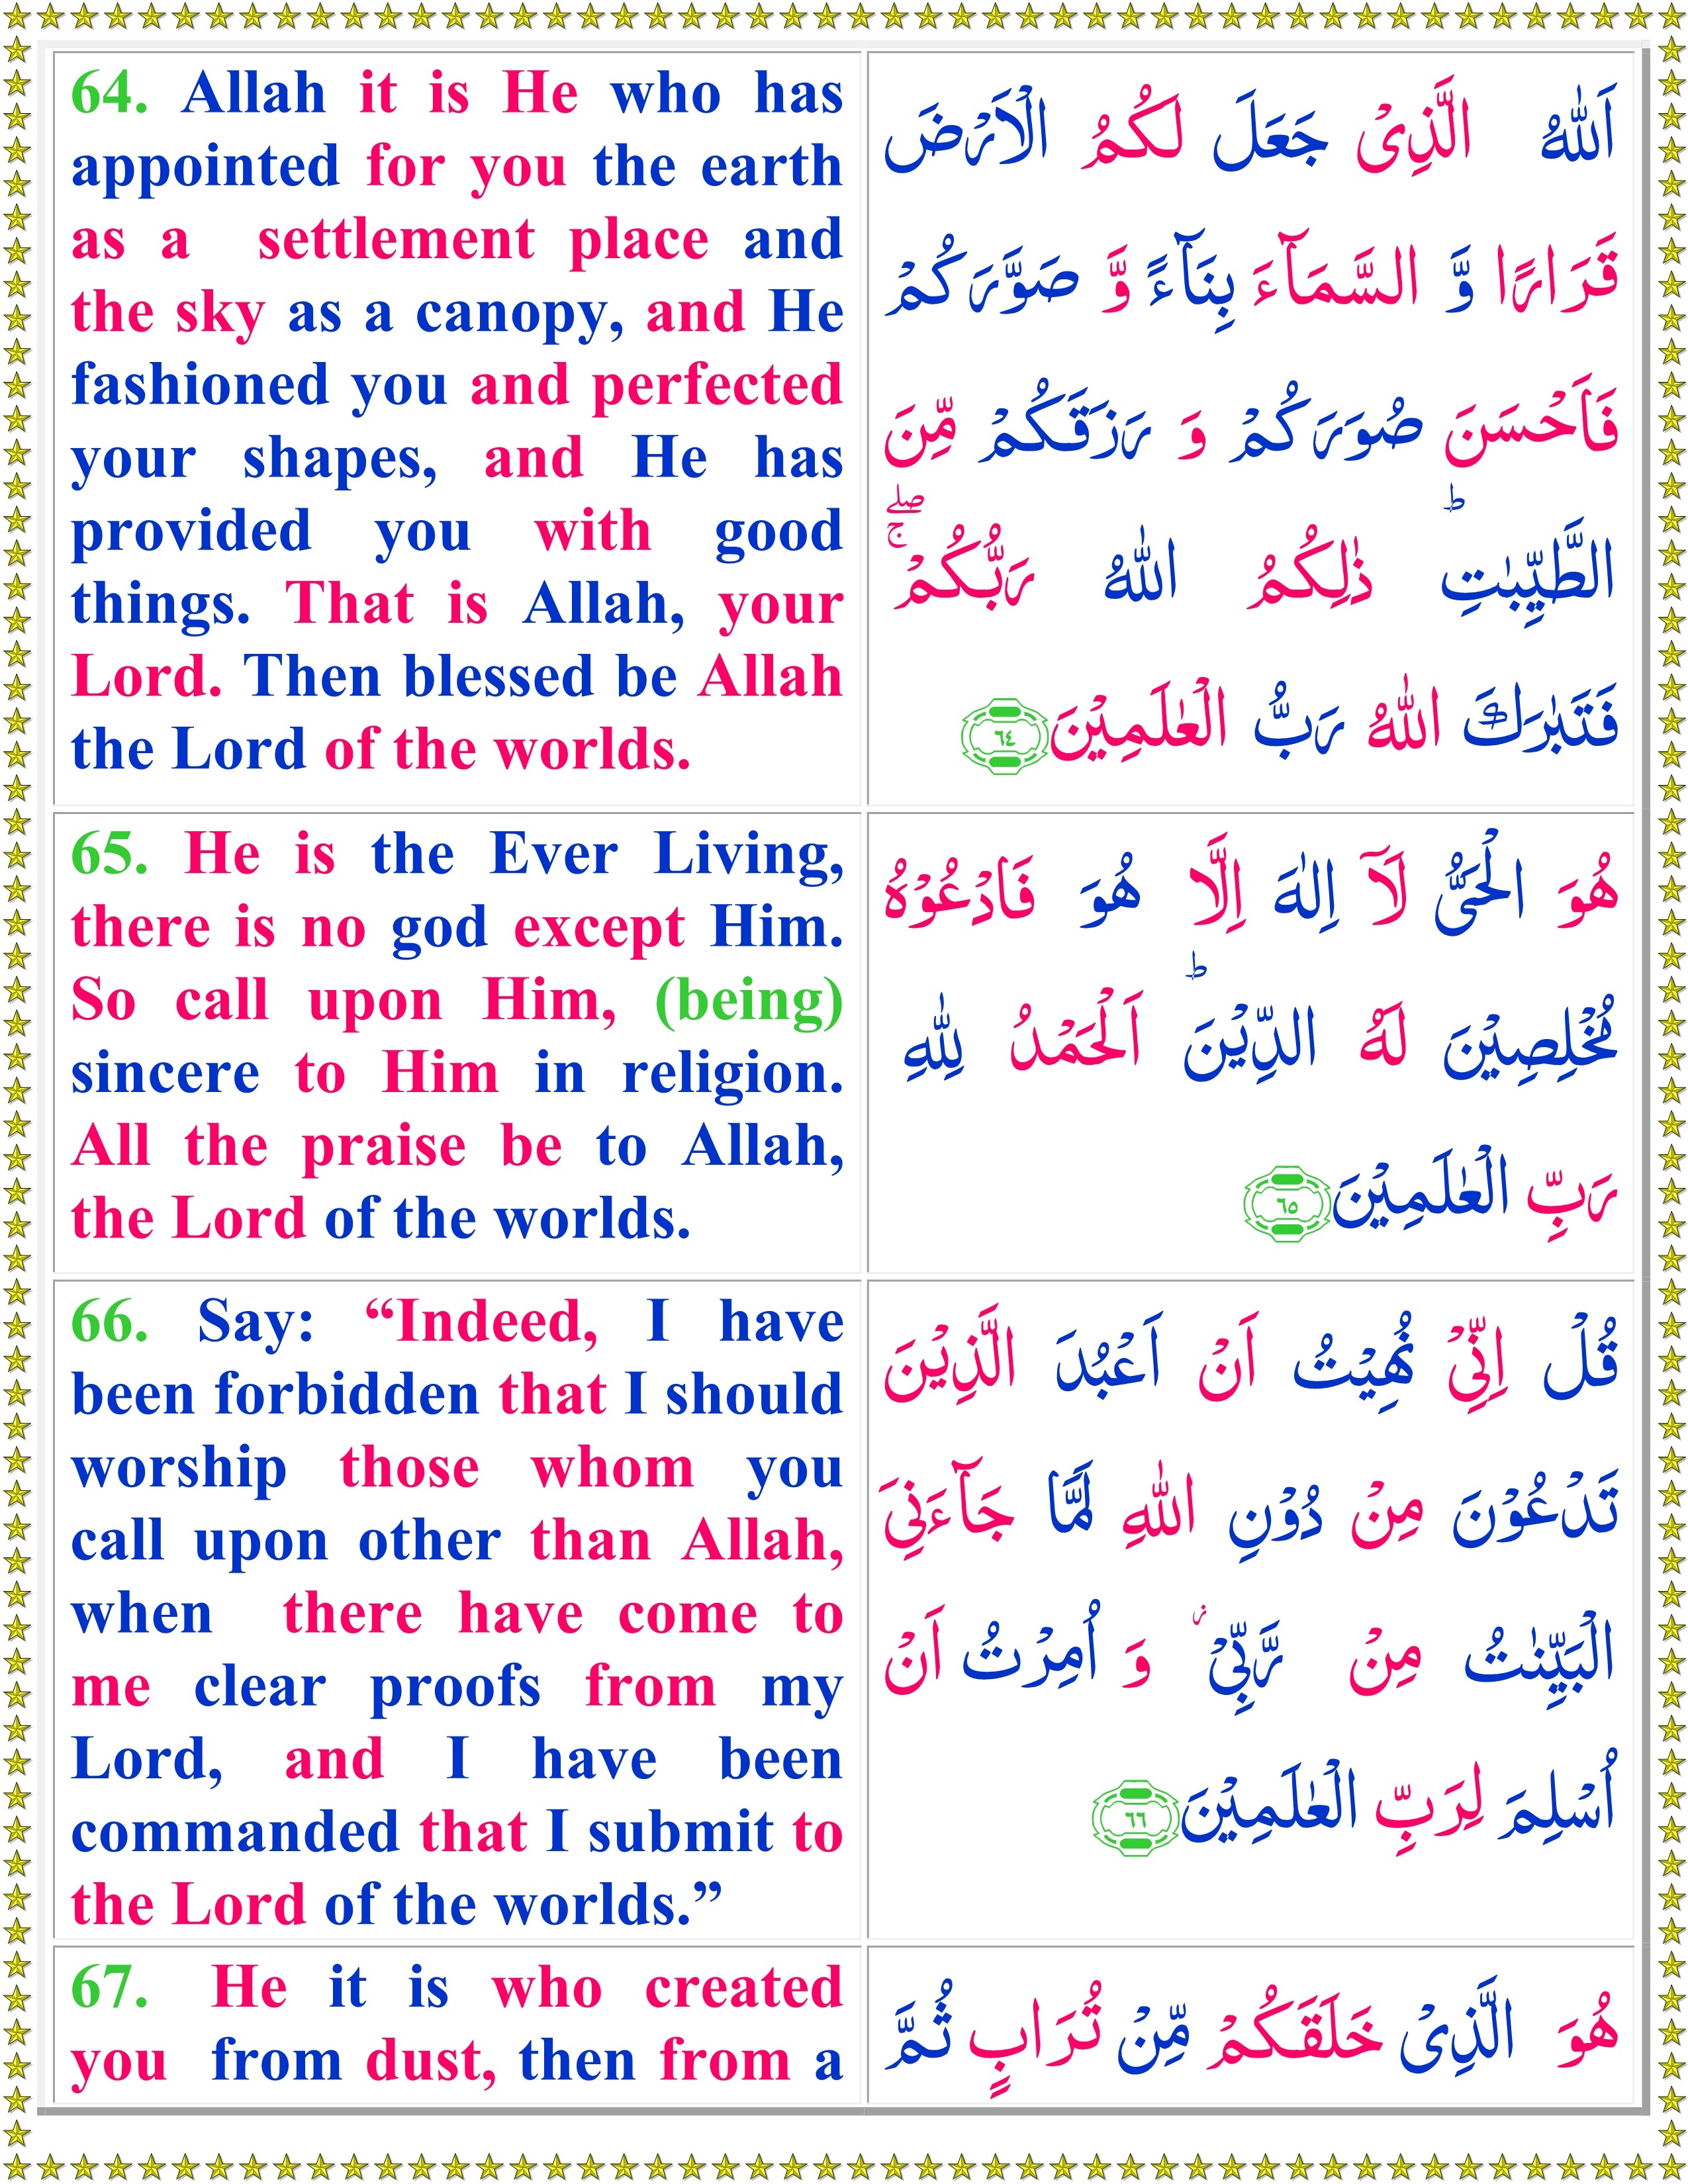 64. Allah it is He who has
appointed for you the earth
as a settlement place and
the sky as a canopy, and He
fashioned you and perfected
your shapes, and He has
provided you with good
things. That is Allah, your
Lord. Then blessed be Allah
the Lord of the worlds.
اَللّٰهُ الَّذِىْ جَعَلَ لَكُمُ الْاَرْضَ
قَرَارًا وَّ السَّمَآءَ بِنَآءً وَّ صَوَّرَكُمْ
فَاَحْسَنَ صُوَرَكُمْ وَ رَزَقَكُمْ مِّنَ
الطَّيِّبٰتِ ؕ ذٰلِكُمُ اللّٰهُ رَبُّكُمْ ۖۚ
فَتَبٰرَكَ اللّٰهُ رَبُّ الْعٰلَمِيْنَ ٦٤
65. He is the Ever Living,
there is no god except Him.
So call upon Him, (being)
sincere to Him in religion.
All the praise be to Allah,
the Lord of the worlds.
هُوَ الْحَىُّ لَاۤ اِلٰهَ اِلَّا هُوَ فَادْعُوْهُ
مُخْلِصِيْنَ لَهُ الدِّيْنَ ؕ اَلْحَمْدُ لِلّٰهِ
رَبِّ الْعٰلَمِيْنَ ٦٥
66. Say: “Indeed, I have
been forbidden that I should
worship those whom you
call upon other than Allah,
when there have come to
me clear proofs from my
Lord, and I have been
commanded that I submit to
the Lord of the worlds.”
قُلْ اِنِّىْ نُهِيْتُ اَنْ اَعْبُدَ الَّذِيْنَ
تَدْعُوْنَ مِنْ دُوْنِ اللّٰهِ لَمَّا جَآءَنِىَ
الْبَيِّنٰتُ مِنْ رَّبِّىْ ؗ وَ اُمِرْتُ اَنْ
اُسْلِمَ لِرَبِّ الْعٰلَمِيْنَ ٦٦
67. He it is who created
you from dust, then from a
هُوَ الَّذِىْ خَلَقَكُمْ مِّنْ تُرَابٍ ثُمَّ